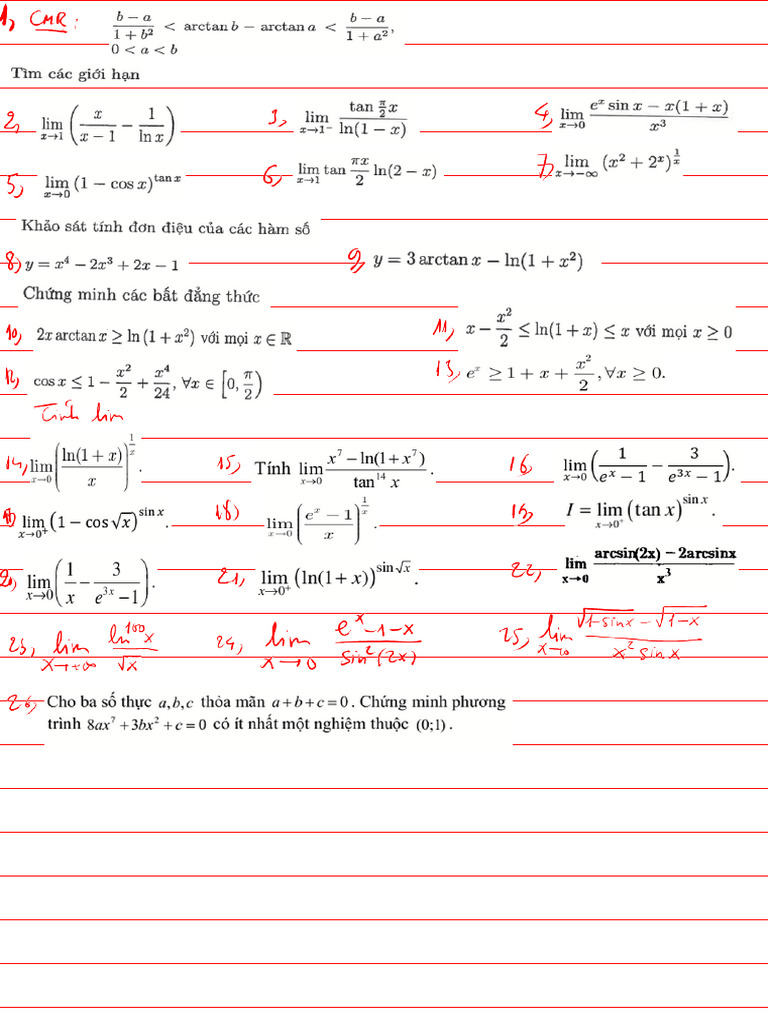 1, CMR: \frac{b-a}{1+b^2} < arctan b − arctan a < \frac{b-a}{1+a^2},
0 < a < b
Tìm các giới hạn
2, \lim_{x→1} ( \frac{x}{x-1} − \frac{1}{\ln x} ) 3, \lim_{x→1^-} \frac{\tan \frac{π}{2} x}{\ln(1-x)} 4, \lim_{x→0} \frac{e^x \sin x − x(1+x)}{x^3}
5, \lim_{x→0} (1 − cos x)^{tan x} 6, \lim_{x→1} tan \frac{πx}{2} ln(2 − x) 7, \lim_{x→−∞} (x^2 + 2^x)^{\frac{1}{x}}
Khảo sát tính đơn điệu của các hàm số
8, y = x^4 − 2x^3 + 2x − 1 9, y = 3 arctan x − ln(1 + x^2)
Chứng minh các bất đẳng thức
10, 2x arctan x ≥ ln (1 + x^2) với mọi x ∈ ℝ 11, x − \frac{x^2}{2} ≤ ln(1 + x) ≤ x với mọi x ≥ 0
12, cos x ≤ 1 − \frac{x^2}{2} + \frac{x^4}{24}, ∀x ∈ [0, \frac{π}{2}) 13, e^x ≥ 1 + x + \frac{x^2}{2}, ∀x ≥ 0.
Tính lim
14, \lim_{x→0} ( \frac{\ln(1+x)}{x} )^{\frac{1}{x}}. 15, Tính \lim_{x→0} \frac{x^7 − \ln(1+x^7)}{\tan^{14} x}. 16, \lim_{x→0} ( \frac{1}{e^x − 1} − \frac{3}{e^{3x} − 1} ).
\lim_{x→0^+} (1 − cos √x)^{sin x}. 18, \lim_{x→0} ( \frac{e^x − 1}{x} )^{\frac{1}{x}}. I = \lim_{x→0^+} (tan x)^{sin x}.
20, \lim_{x→0} ( \frac{1}{x} − \frac{3}{e^{3x} − 1} ). 21, \lim_{x→0^+} (ln(1 + x))^{sin √x}. 22, \lim_{x→0} \frac{arcsin(2x) − 2arcsinx}{x^3}
23, \lim_{x→+∞} \frac{\ln^{100} x}{√x} 24, \lim_{x→0} \frac{e^x − 1 − x}{\sin^2(2x)} 25, \lim_{x→0} \frac{\sqrt{1 − sin x} − \sqrt{1 − x}}{x^2 sin x}
26, Cho ba số thực a, b, c thỏa mãn a + b + c = 0. Chứng minh phương
trình 8ax^7 + 3bx^2 + c = 0 có ít nhất một nghiệm thuộc (0;1).